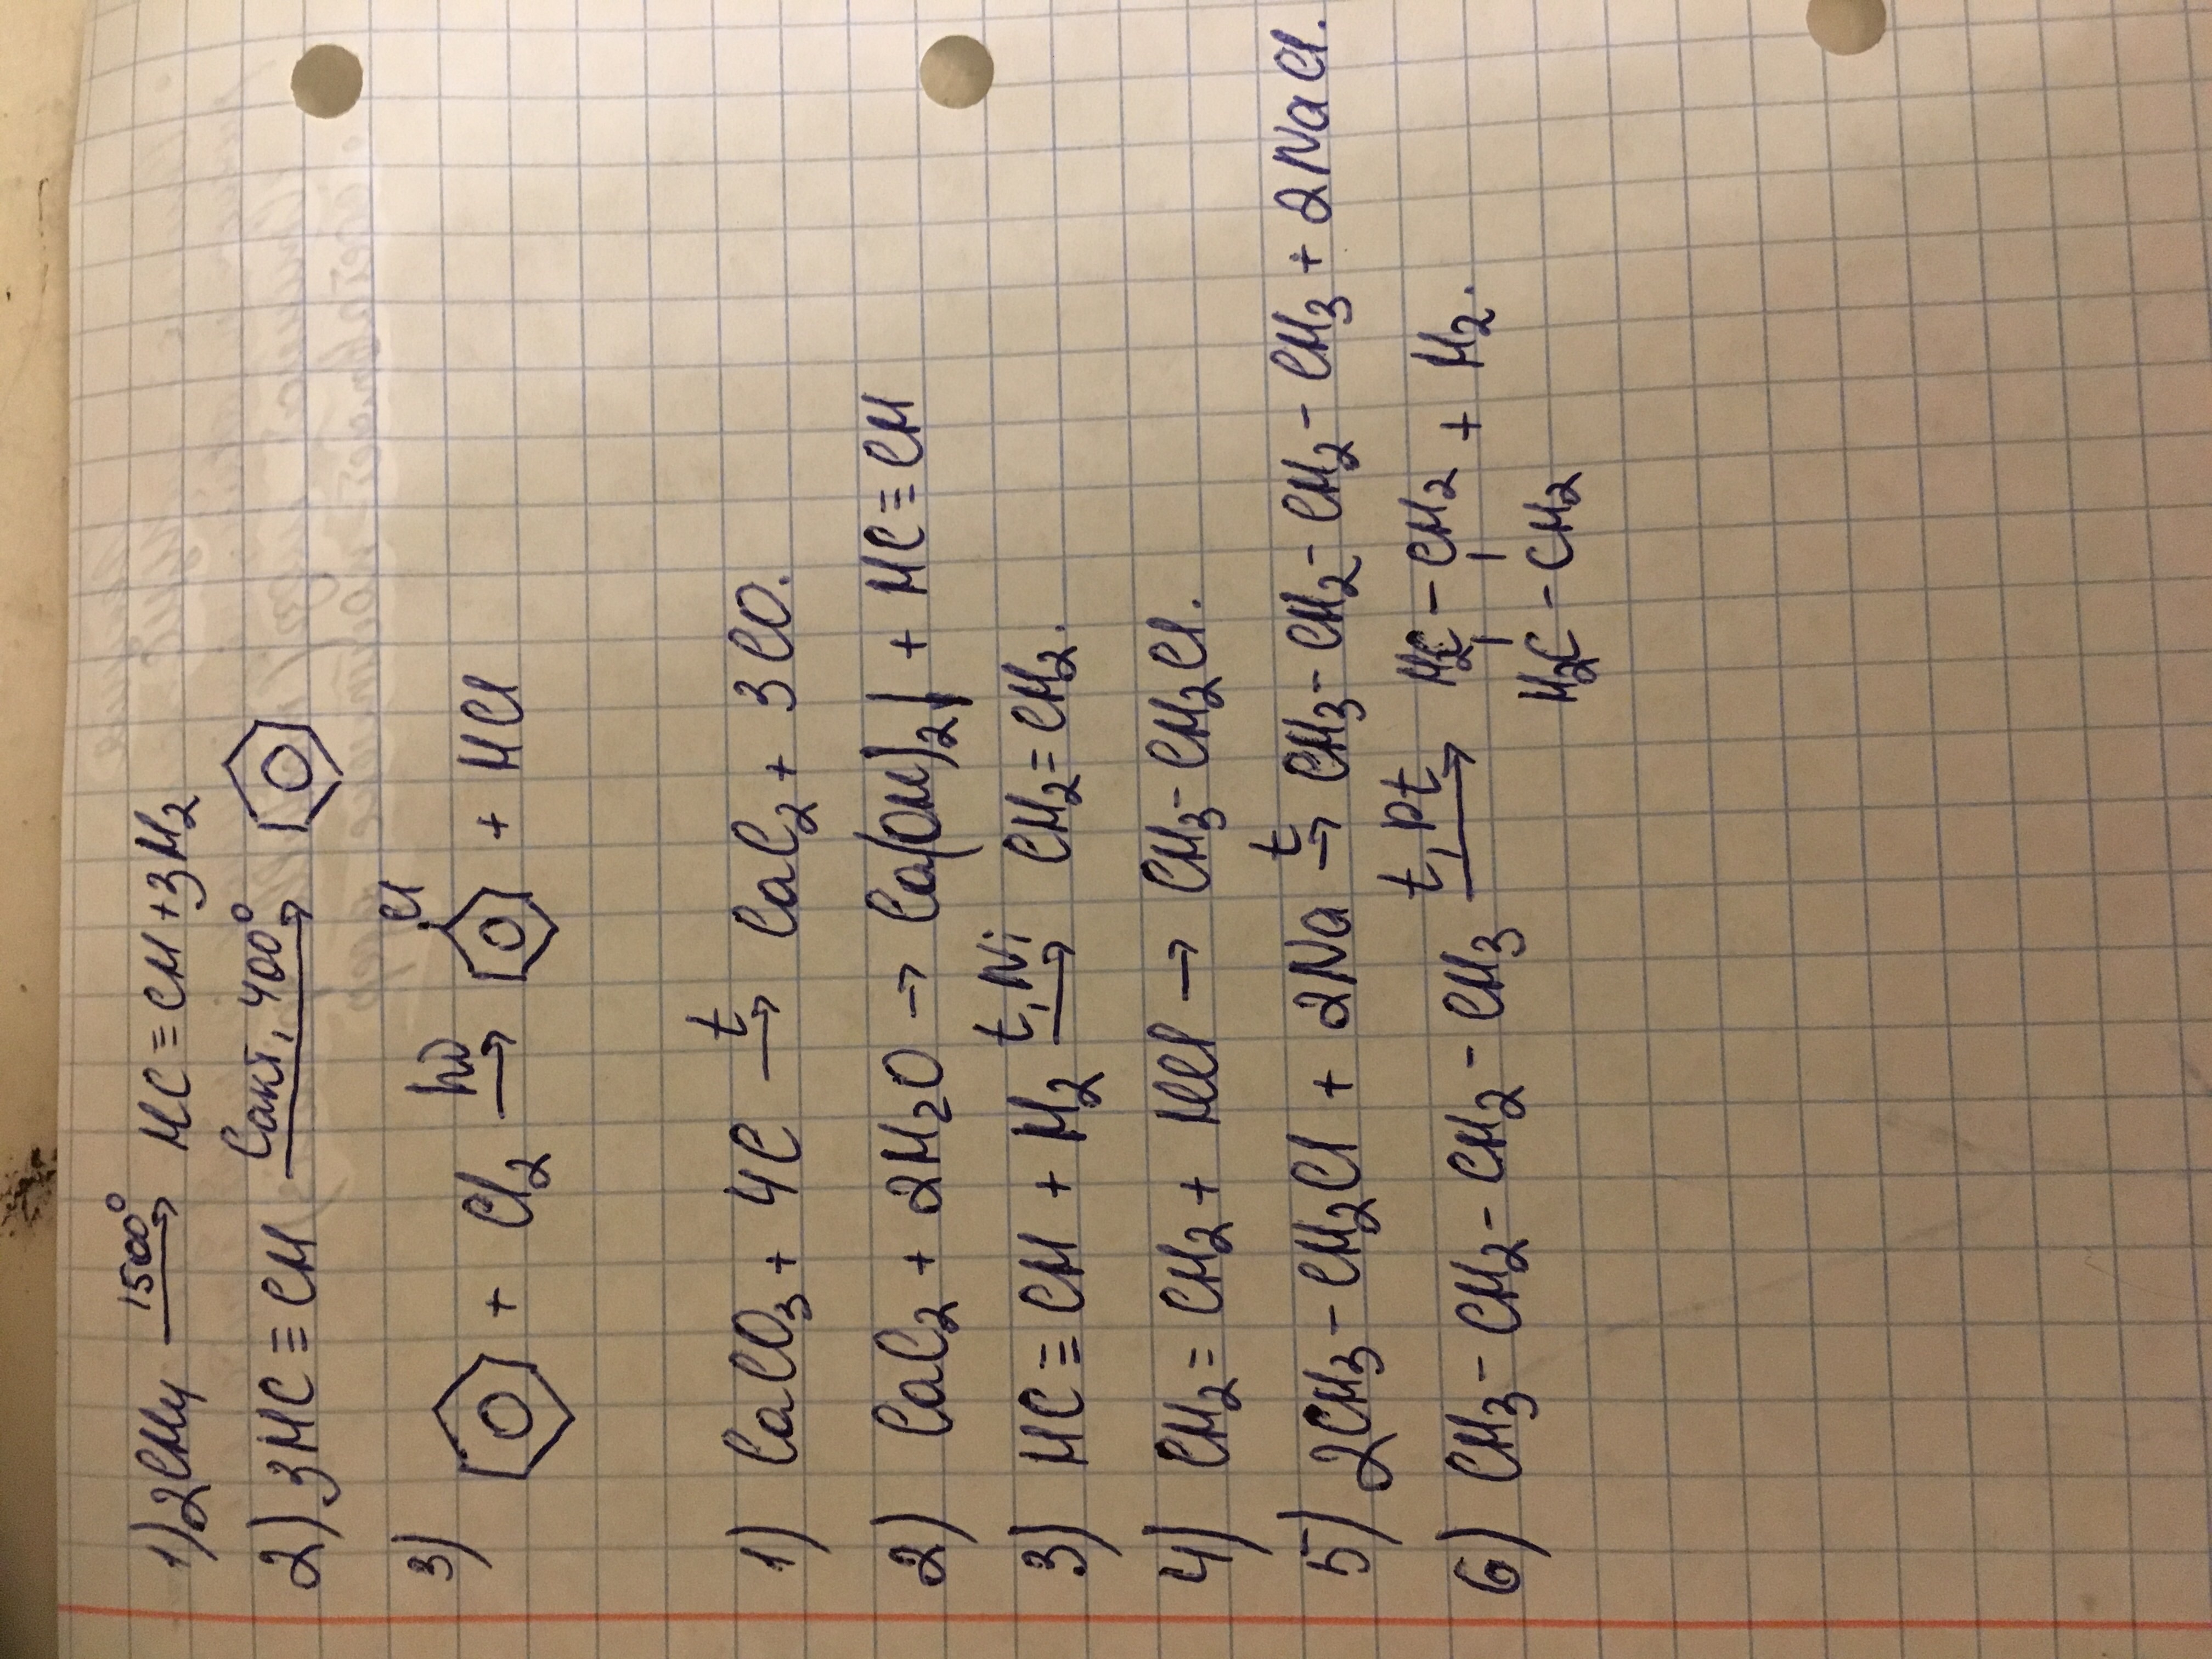 1) 2CH4 1500° → HC≡CH + 3H2
2) 3HC≡CH Cакт, 400° →
3) + Cl2 hν → Cl + HCl
1) CaCO3 + 4C t → CaC2 + 3CO.
2) CaC2 + 2H2O → Ca(OH)2↓ + HC≡CH
3) HC≡CH + H2 t, Ni → CH2=CH2.
4) CH2=CH2 + HCl → CH3-CH2Cl.
5) 2CH3-CH2Cl + 2Na t → CH3-CH2-CH2-CH3 + 2NaCl.
6) CH3-CH2-CH2-CH3 t, Pt → H2C-CH2 + H2.
H2C-CH2